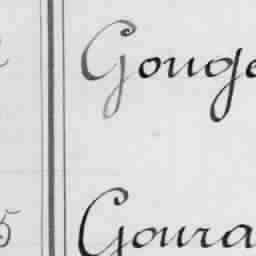 Gouge
5 Goura